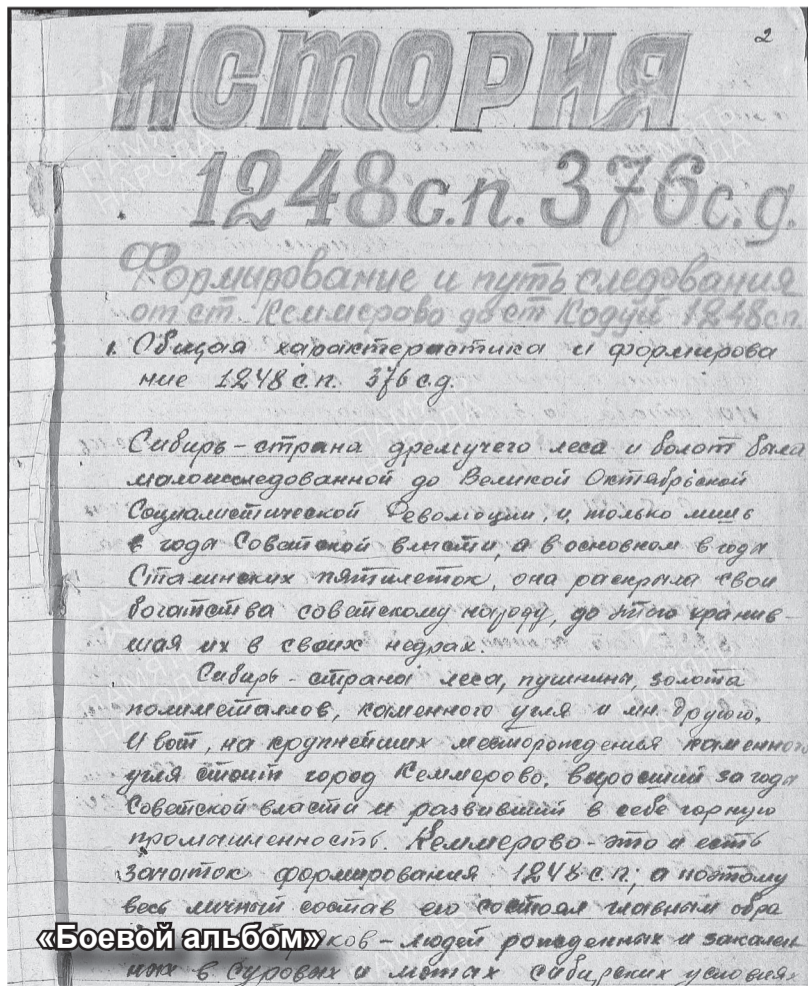 2
ИСТОРИЯ
1248 с.п. 376 с.д.
Формирование и путь следования
от ст. Кеммерово до ст Кодуй 1248 сп.
1. Общая характеристика и формирова
ние 1248 с.п. 376 с.д.
Сибирь – страна дремучего леса и болот была
малоисследованной до Великой Октябрьской
Социалистической Революции, и, только лишь
в годы Советской власти, а в основном в годы
Сталинских пятилеток, она раскрыла свои
богатства советскому народу, до этого хранив
шая их в своих недрах.
Сибирь – страна леса, пушнины, золота
полиметаллов, каменного угля и мн. другого.
И вот, на крупнейших месторождения каменного
угля стоит город Кеммерово, выросший за годы
Советской власти и развивший в себе горную
промышленность. Кеммерово – это и есть
зачаток формирования 1248 с.п., а поэтому
весь личный состав его состоял главным обра
ков – людей рожденных и закален
ных в суровых и сибирских условиях
«Боевой альбом»
ПАМЯТЬ
НАРОДА